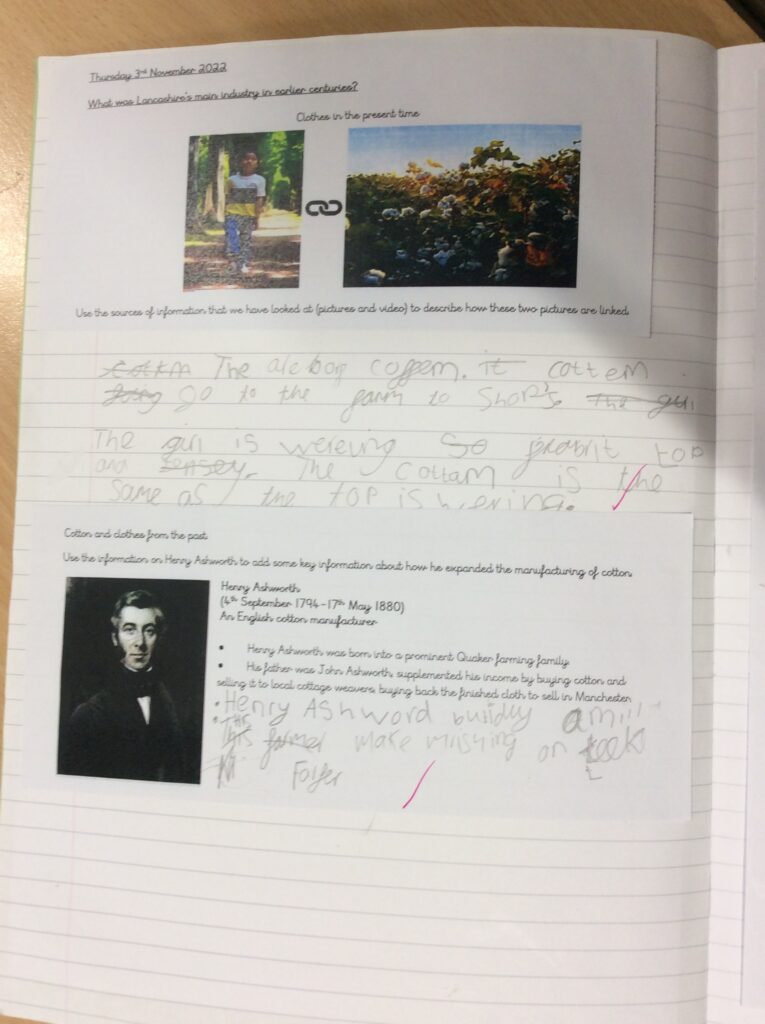 Thursday 3rd November 2022
What was Lancashire's main industry in earlier centuries?
Clothes in the present time
Use the sources of information that we have looked at (pictures and video) to describe how these two pictures are linked.
The coffem. it cottem
go to the farm to shop's The gurl
The gurl is wereing So top
and The cottam is the
same as the top is wering.
Cotton and clothes from the past.
Use the information on Henry Ashworth to add some key information about how he expanded the manufacturing of cotton.
Henry Ashworth
(4th September 1794-17th May 1880)
An English cotton manufacturer
• Henry Ashworth was born into a prominent Quaker farming family.
• His father was John Ashworth, supplemented his income by buying cotton and
selling it to local cottage weavers, buying back the finished cloth to sell in Manchester.
• Henry Ashword buildly a mill
• This farmer make on